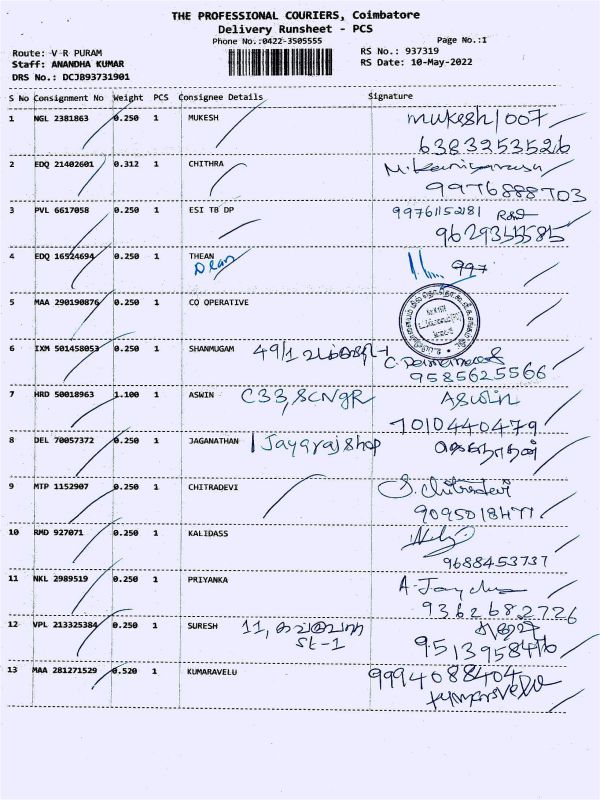 THE PROFESSIONAL COURIERS, Coimbatore
Delivery Runsheet - PCS
Phone No.:0422-3505555 Page No.:1
Route: V R PURAM RS No.: 937319
Staff: ANANDHA KUMAR RS Date: 10-May-2022
DRS No.: DCJB93731901
S No Consignment No Weight PCS Consignee Details Signature
1 NGL 2381863 0.250 1 MUKESH mukesh/007
6383353526
2 EDQ 21402601 0.312 1 CHITHRA
9976888703
3 PVL 6617058 0.250 1 ESI TB DP 99761152181
9629355585
4 EDQ 16524694 0.250 1 THEAN 997
Dean
5 MAA 290190876 0.250 1 CO OPERATIVE
6 IXM 501458053 0.250 1 SHANMUGAM 49/1
9585625566
7 HRD 50018963 1.100 1 ASWIN C33, SCNgR Aswin
7010440479
8 DEL 70057372 0.250 1 JAGANATHAN Jayaraj shop ஜெகநாதன்
9 MTP 1152907 0.250 1 CHITRADEVI S. Chitradevi
9095018477
10 RMD 927071 0.250 1 KALIDASS
9688453737
11 NKL 2989519 0.250 1 PRIYANKA
9362682726
12 VPL 213325384 0.250 1 SURESH 11,
St-1 9513958416
13 MAA 281271529 0.520 1 KUMARAVELU 9994088404
kumaravelu